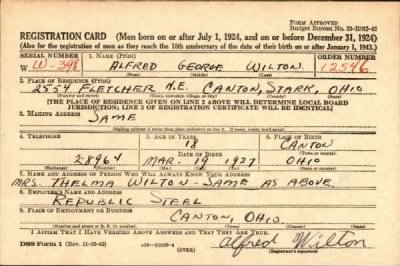 FORM APPROVED
Budget Bureau No. 33-R012-42
REGISTRATION CARD (Men born on or after July 1, 1924, and on or before December 31, 1924)
(Also for the registration of men as they reach the 18th anniversary of the date of their birth on or after January 1, 1943.)
SERIAL NUMBER 1. NAME (Print) ORDER NUMBER
W-348 ALFRED GEORGE WILTON 12546
(First) (Middle) (Last)
2. PLACE OF RESIDENCE (Print)
2554 FLETCHER N.E. CANTON, STARK, OHIO
(Number and street) (Town, township, village or city) (County) (State)
[THE PLACE OF RESIDENCE GIVEN ON LINE 2 ABOVE WILL DETERMINE LOCAL BOARD
JURISDICTION; LINE 2 OF REGISTRATION CERTIFICATE WILL BE IDENTICAL]
3. MAILING ADDRESS
SAME
[Mailing address if other than place indicated on line 2. If same, insert word same]
4. TELEPHONE 5. AGE IN YEARS 6. PLACE OF BIRTH
18 CANTON
DATE OF BIRTH (Town or county)
28964 MAR. 19 1927 OHIO
(Exchange) (Number) (Mo.) (Day) (Yr.) (State or country)
7. NAME AND ADDRESS OF PERSON WHO WILL ALWAYS KNOW YOUR ADDRESS
MRS. THELMA WILTON-SAME AS ABOVE
8. EMPLOYER'S NAME AND ADDRESS
REPUBLIC STEEL
9. PLACE OF EMPLOYMENT OR BUSINESS
CANTON, OHIO.
(Number and street or R. F. D. number) (Town) (County) (State)
I AFFIRM THAT I HAVE VERIFIED ABOVE ANSWERS AND THAT THEY ARE TRUE.
DSS Form 1 (Rev. 11-16-42) (OVER) Alfred Wilton